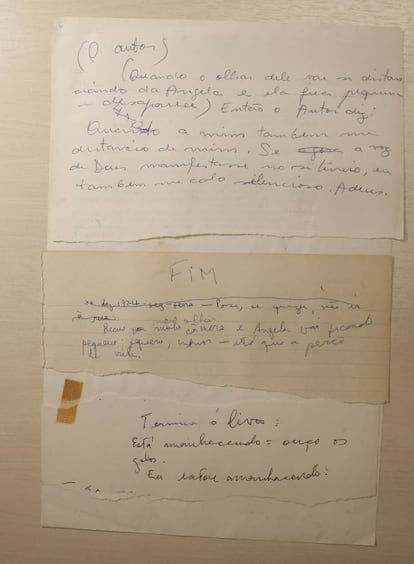 (O autor)
(Quando o olhar dele vai se distan
ciando da Angela e ela fica pequena
e desaparece) Então o Autor diz:
Quanto a mim também me
distancio de mim. Se a voz
de Deus manifesta-se no silêncio, eu
também me calo silencioso. Adeus.
FIM
dez 1974 — se não
meu olhar
Recuo câmera e Angela vai ficando
pequena, pequena, — até que a perco
de vista.
Termina o livro:
Está amanhecendo = ouço os
galos.
Eu estou amanhecendo.